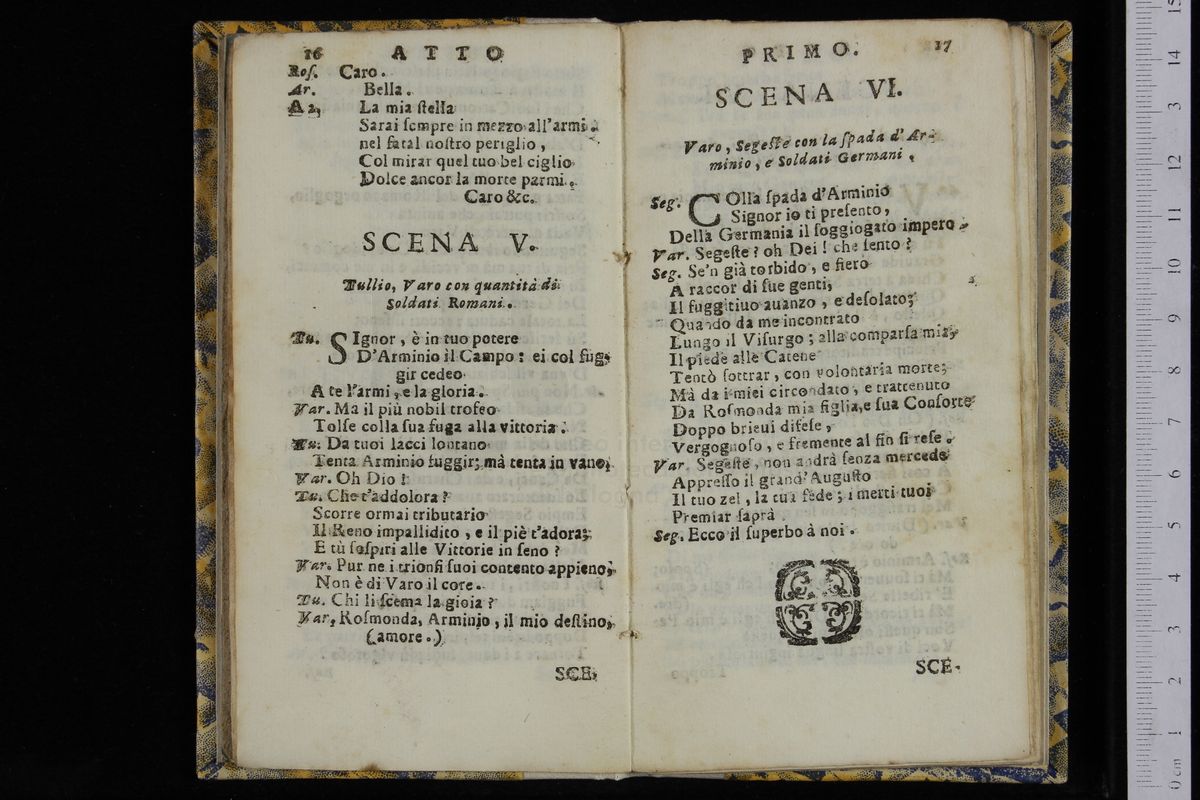 16 ATTO
Roſ. Caro.
Ar. Bella.
A 2, La mia ſtella
Sarai ſempre in mezzo all'armi.
nel fatal noſtro periglio,
Col mirar quel tuo bel ciglio
Dolce ancor la morte parmi.
Caro &c.
SCENA V.
Tullio, Varo con quantità di
Soldati Romani.
Tu. SIgnor, è in tuo potere
D'Arminio il Campo: ei col fug-
gir cedeo
A te l'armi, e la gloria.
Var. Ma il più nobil trofeo
Tolſe colla ſua fuga alla vittoria.
Tu. Da tuoi lacci lontano
Tenta Arminio fuggir; mà tenta in vano;
Var. Oh Dio!
Tu. Che t'addolora?
Scorre ormai tributario
Il Reno impallidito, e il piè t'adora;
E tù ſoſpiri alle Vittorie in ſeno?
Var. Pur ne i trionfi ſuoi contento appieno,
Non è di Varo il core.
Tu. Chi li ſcema la gioia?
Var, Roſmonda, Arminio, il mio deſtino,
(amore.)
SCE-
PRIMO. 17
SCENA VI.
Varo, Segeſte con la ſpada d'Ar-
minio, e Soldati Germani.
Seg. COlla ſpada d'Arminio
Signor io ti preſento,
Della Germania il ſoggiogato impero.
Var. Segeſte? oh Dei! che ſento?
Seg. Se'n già torbido, e fiero
A raccor di ſue genti,
Il fuggitiuo auanzo, e deſolato;
Quando da me incontrato
Lungo il Viſurgo; alla comparſa mia,
Il piede alle Catene
Tentò ſottrar, con volontaria morte;
Mà da i miei circondato, e trattenuto
Da Roſmonda mia figlia, e ſua Conſorte
Doppo brieui difeſe,
Vergognoſo, e fremente al fin ſi reſe.
Var. Segeſte, non andrà ſenza mercede
Appreſſo il grand'Auguſto
Il tuo zel, la tua fede; i merti tuoi
Premiar ſaprà.
Seg. Ecco il ſuperbo à noi.
SCE-